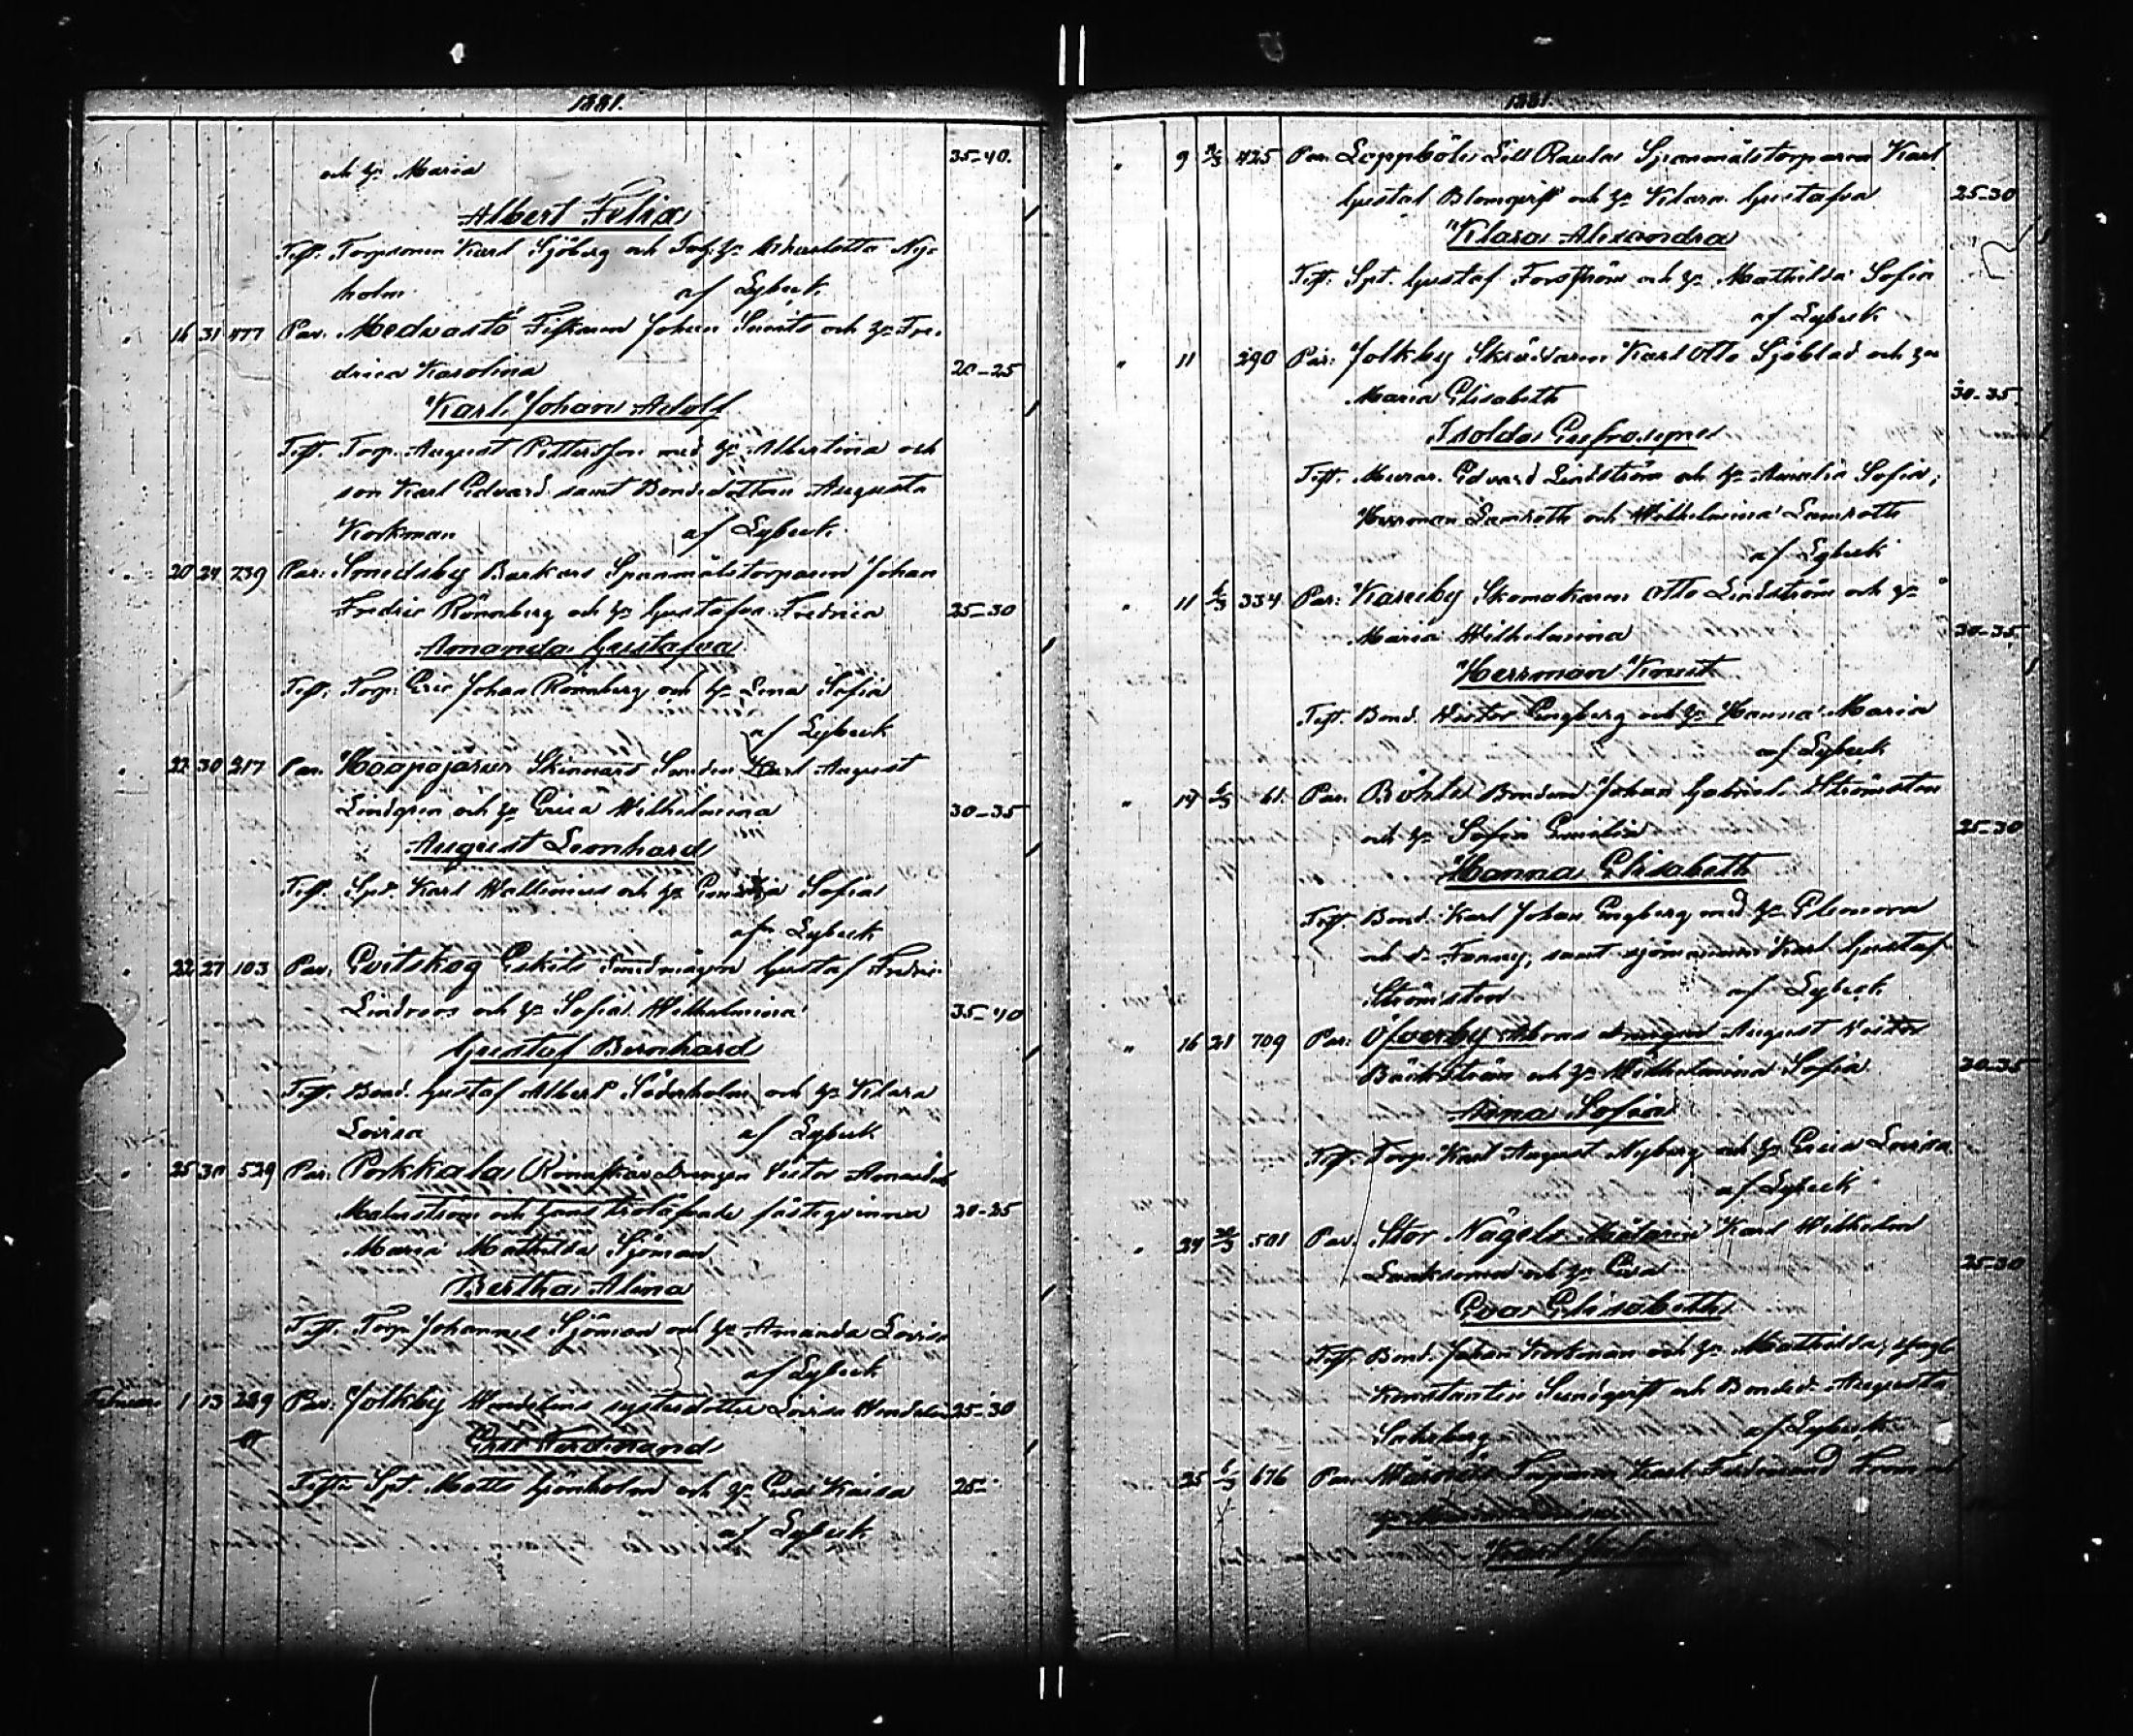 1881.
och h: Maria 35-40.
Albert Felix
Test. Torpson Karl Sjöberg och Torp: h: Charlotta Ny-
holm af Lybeck
" 16 31 477 Par. Medvastö Fiskaren Johan Sunits och h: Fre-
drica Karolina 20-25
Karl Johan Adolf
Test. Torp. August Pettersson med h: Albertina och
son Karl Edvard samt Bondedottren Augusta
Korkman af Lybeck
" 20 24 739 Par: Smedsby Barkars Spanmålstorparen Johan
Fredric Rönnberg och h: Gustafva Fredrica 25-30
Amanda Gustafva
Test. Torp: Eric Johan Rönnberg och h: Lena Sofia
af Lybeck
" 22 30 217 Par. Haapajärvi Skinnars Karl August
Lindgren och h: Erica Wilhelmina 30-35
August Leonhard
Test. Spt. Karl Wallenius och h: Sofia
af Lybeck
" 22 27 103 Par. Evitskog Eskils Gustaf Fredric
Lindroos och h: Sofia Wilhelmina 35-40
Gustaf Bernhard
Test. Bond. Gustaf Albert Söderholm och h: Klara
Lovisa af Lybeck
" 25 30 539 Par: Porkkala Rönnskär drengen Victor Amandus
Malmström och hans trolåfvade fästeqvinna 20-25
Maria Mathilda Sjöman
Bertha Alina
Test. Torp Johannes Sjöman och h: Amanda Lovisa
af Lybeck
Februari 1 13 289 Par. Jolkby Wendelins systerdotter Lovisa Wendelin 25-30
Eric Ferdinand
Test: Spt. Matts Grönholm och h: Eva Kaisa 25-
af Lybeck
1881.
" 9 425 Par. Lappböle Lill Raulas Spanmålstorparen Karl
Gustaf Blomqvist och h: Klara Gustafva 25-30
Klara Alexandra
Test: Spt. Gustaf Forsström och h: Mathilda Sofia
af Lybeck
" 11 290 Par: Jolkby Skräddaren Karl Otto Sjöblad och h:
Maria Elisabeth 30-35.
Isolda Eufrosyne
Test. Murar. Edvard Lindström och h: Amalia Sofia,
Herrman Lamroth och Wilhelmina Lamroth
af Lybeck
" 11 334 Par: Karuby Skomakaren Otto Lindström och h:
Maria Wilhelmina 30-35.
Herrman Knut
Test. Bond. Victor Engberg och h: Hanna Maria
af Lybeck
" 14 61. Par. Böhle Bonden Johan Gabriel Strömsten
och h: Sofia Emilia 25-30
Hanna Elisabeth
Test Bond. Karl Johan Engberg med h: Eleonora
och d: Fanny, samt sjömannen Karl Gustaf
Strömsten af Lybeck
" 16 21 709 Par: Öfverby Abras drengen August Victor
Bäckström och h: Wilhelmina Sofia 30-35
Anna Sofia
Test: Torp. Karl August Nyberg och h: Erica Lovisa
af Lybeck
" 24 501 Par. Stor Nägels Målaren Karl Wilhelm
och h: Eva 25-30
Eva Elisabeth
Test. Bond. Johan Korkman och h: Mathilda, yngl.
Konstantin Sundqvist och Bonded. Augusta
af Lybeck
25 676 Par. Torparen Karl Ferdinand
Karl